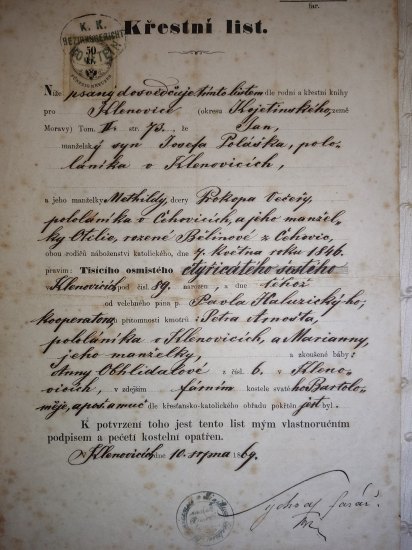 liar.
K. K.
BEZIRKSGERICHT
50
Křestní list.
Níže psaný dosvědčuje tímto listem dle rodní a křestní knihy
pro Klenovice (okresu Kojetínského, země
Moravy) Tom. V. str. 73. že Jan,
manželský syn Josefa Poláška, polo-
láníka v Klenovicích,
a jeho manželky Methildy, dcery Prokopa Večeři,
pololáníka v Čehovicích, a jeho manžel-
ky Otilie, rozené Bělinové z Čehovic,
obou rodičů náboženství katolického, dne 7. Května roku 1846.
pravím: Tisícího osmistého čtyřicátého šestého
v Klenovicích pod čís. 89. narozen, a dne téhož
od velebného pána p. Pavla Haluzického,
kooperatora přítomnosti kmotrů: Petra Arnošta,
pololáníka v Klenovicích, a Marianny,
jeho manželky, a zkoušené báby:
Anny Obhlídalové z čís. 6. v Kleno-
vicích, v zdejším farním kostele svatého Bartolo-
měje, apoš. a muč dle křesťansko-katolického obřadu pokřtěn jest byl.
K potvrzení toho jest tento list mým vlastnoručním
podpisem a pečetí kostelní opatřen.
v Klenovicích dne 10. srpna 1869.
farář